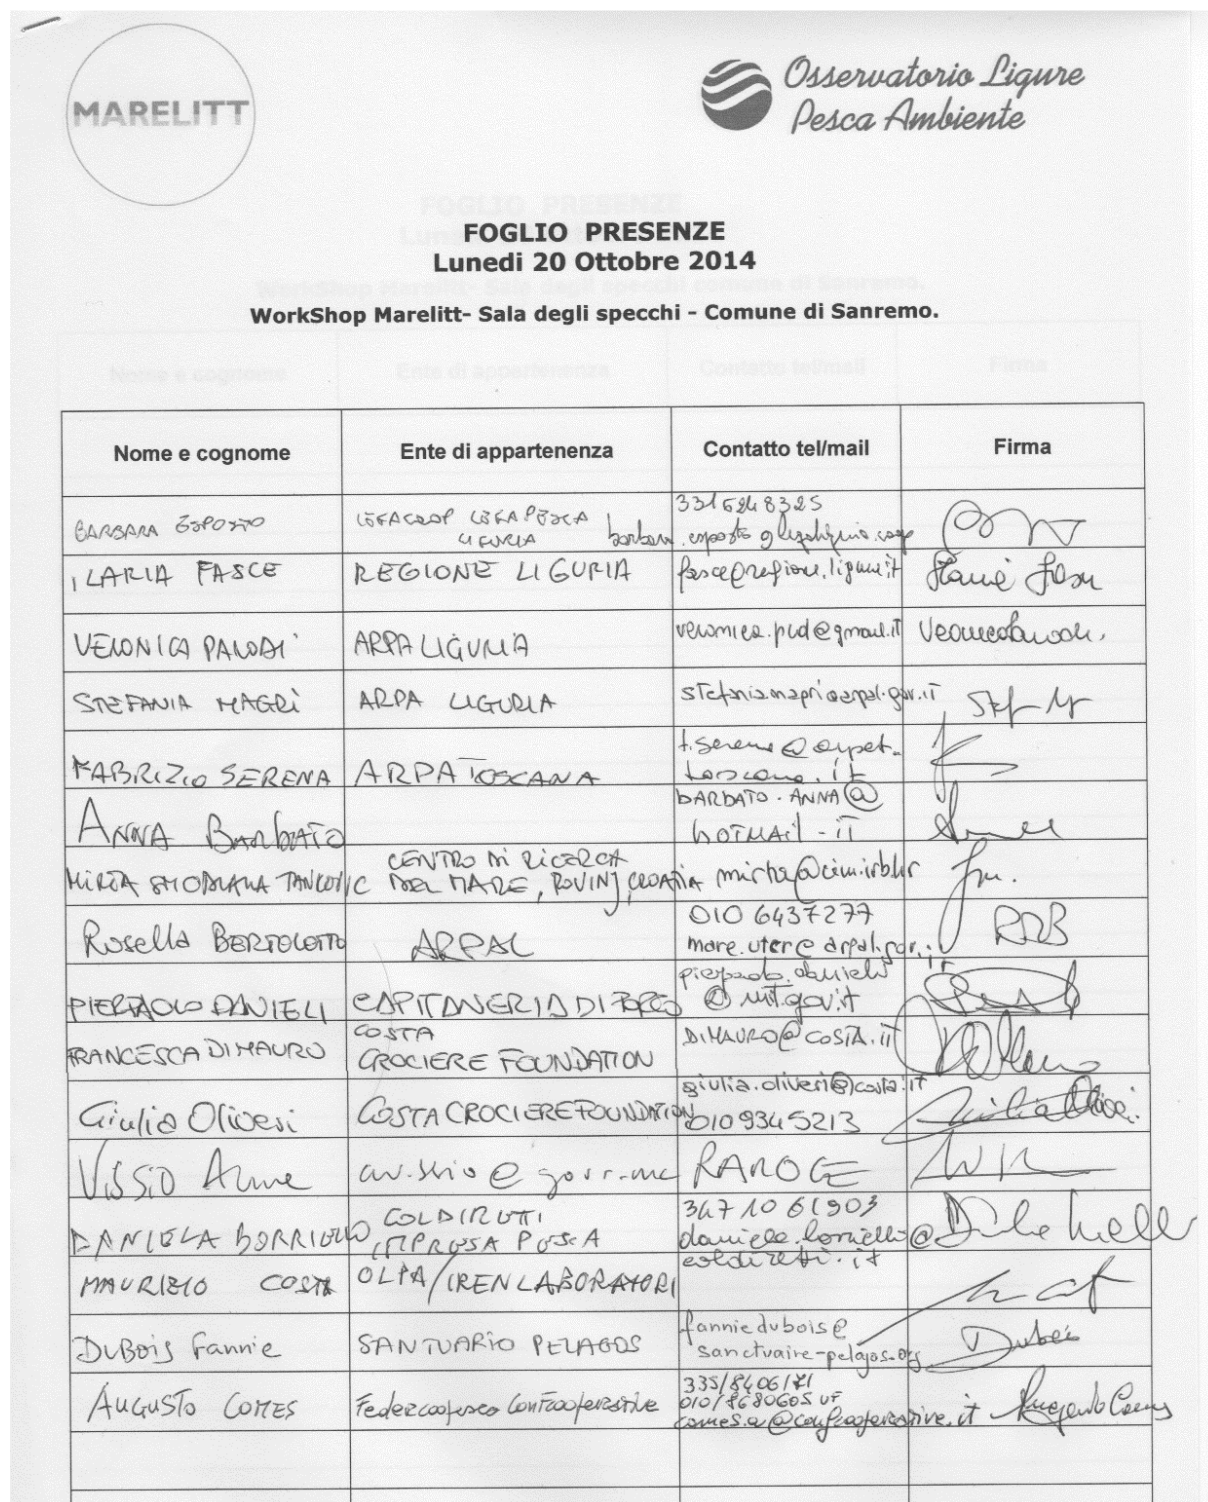 MARELITT
Osservatorio Ligure
Pesca Ambiente
FOGLIO PRESENZE
Lunedi 20 Ottobre 2014
WorkShop Marelitt- Sala degli specchi - Comune di Sanremo.
Nome e cognome Ente di appartenenza Contatto tel/mail Firma
BARBARA ESPOSTO LEGACOOP LEGAPESCA
LIGURIA
ILARIA FASCE REGIONE LIGURIA fasce@regione.liguria.it
VERONICA PARODI ARPA LIGURIA veronica.prd@gmail.it
STEFANIA MAGRÌ ARPA LIGURIA stefania.magri@arpal.gov.it
FABRIZIO SERENA ARPA TOSCANA f.serena@arpat.
toscana.it
ANNA BARBATO BARBATO.ANNA@
HOTMAIL.IT
MIRTA SMODLAKA TANKOVIC CENTRO DI RICERCA
DEL MARE, ROVINJ, CROATIA mirta@cim.irb.hr
Rosella BERTOLOTTO ARPAL 010 6437277
mare.uter@arpal.gov.it
RRB
PIERPAOLO DANIELI CAPITANERIA DI PORTO pierpaolo.danieli
@mit.gov.it
FRANCESCA DI MAURO COSTA
CROCIERE FOUNDATION DIMAURO@COSTA.IT
Giulia Oliveri COSTA CROCIERE FOUNDATION giulia.oliveri@costa.it
010 9345213
VISSIO Anne RAMOGE
DANIELA BORRIELLO COLDIRETTI
IMPRESA PESCA 347 10 61903
daniela.borriello@
coldiretti.it
MAURIZIO COSTA OLPA/IREN LABORATORI
DUBOIS Fannie SANTUARIO PELAGOS fanniedubois@
sanctuaire-pelagos.org
Dubois
AUGUSTO COMES Federcoopesca Confcooperative 335/8406171
010/8680605 uf
comes.a@confcooperative.it